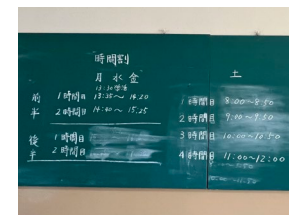 時間割
月 水 金 土
13:30
前半 1時間目 13:35～14:20
2時間目 14:40～15:25
後半 1時間目
2時間目
1時間目 8:00～8:50
2時間目 9:00～9:50
3時間目 10:00～10:50
4時間目 11:00～12:00